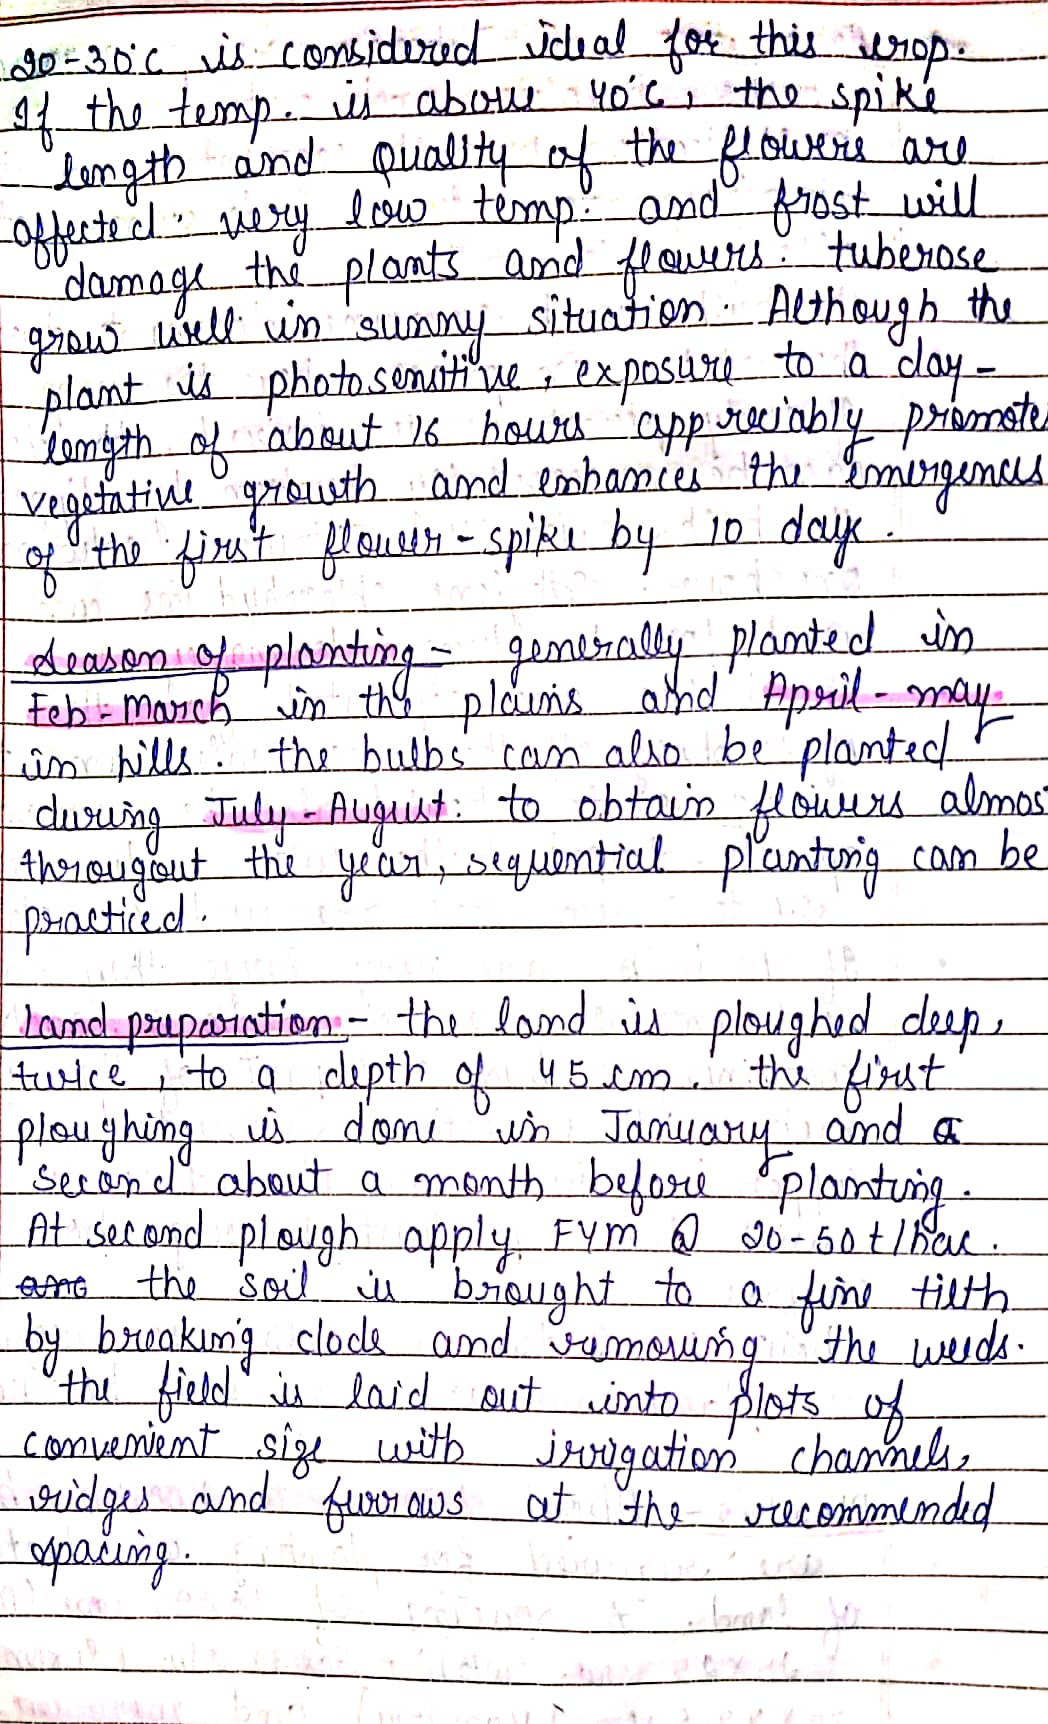 20-30°C is considered ideal for this crop.
If the temp. is above 40°C, the spike
length and quality of the flowers are
affected. very low temp. and frost will
damage the plants and flowers. tuberose
grow well in sunny situation. Although the
plant is photosensitive, exposure to a day-
length of about 16 hours appreciably promote
vegetative growth and enhances the emergences
of the first flower-spike by 10 days.
Season of planting - generally planted in
Feb-March in the plains and April-may
in hills. the bulbs can also be planted
during July-August. to obtain flowers almos
througout the year, sequential planting can be
practiced.
Land preparation - the land is ploughed deep,
twice, to a depth of 45 cm. the first
ploughing is done in January and a
second about a month before planting.
At second plough apply FYM @ 20-50 t/hac.
the soil is brought to a fine tilth
by breaking clods and removing the weeds.
the field is laid out into plots of
convenient size with irrigation channels,
ridges and furrows at the recommended
spacing.